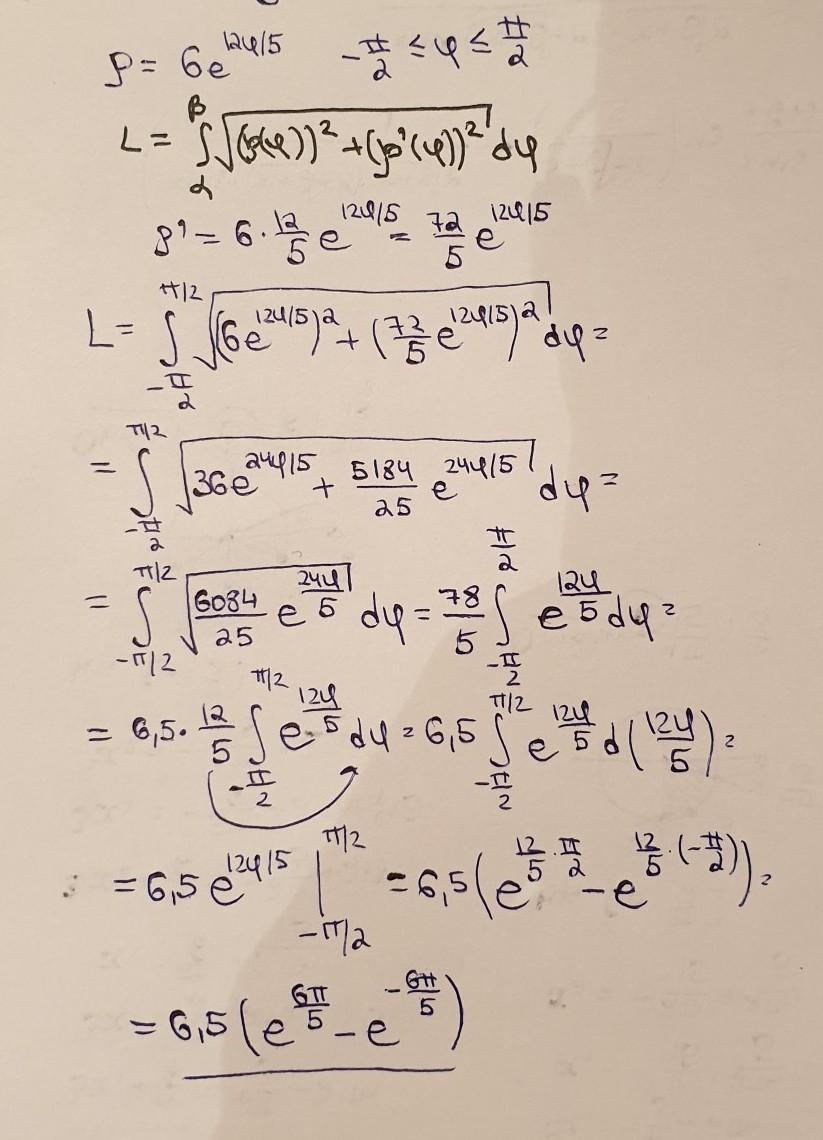 ρ = 6e^{12φ/5}   -π/2 ≤ φ ≤ π/2
L = ∫_α^β √((ρ(φ))² + (ρ'(φ))²) dφ
ρ' = 6 · 12/5 e^{12φ/5} = 72/5 e^{12φ/5}
L = ∫_{-π/2}^{π/2} √((6e^{12φ/5})² + (72/5 e^{12φ/5})²) dφ =
= ∫_{-π/2}^{π/2} √(36e^{24φ/5} + 5184/25 e^{24φ/5}) dφ =
= ∫_{-π/2}^{π/2} √(6084/25 e^{24φ/5}) dφ = 78/5 ∫_{-π/2}^{π/2} e^{12φ/5} dφ =
= 6,5 · 12/5 ∫_{-π/2}^{π/2} e^{12φ/5} dφ = 6,5 ∫_{-π/2}^{π/2} e^{12φ/5} d(12φ/5) =
= 6,5 e^{12φ/5} |_{-π/2}^{π/2} = 6,5 (e^{12/5 · π/2} - e^{12/5 · (-π/2)}) =
= 6,5 (e^{6π/5} - e^{-6π/5})